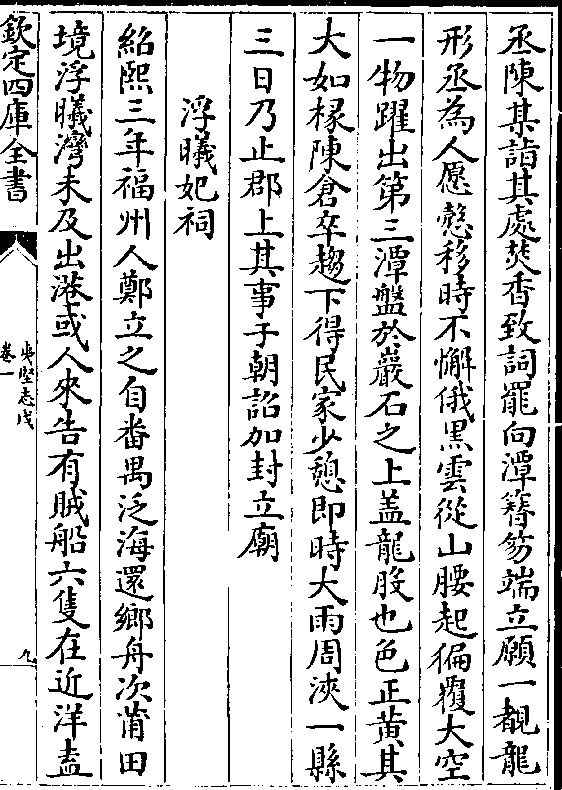 丞陳某詣其處焚香致詞罷向潭簪笏端立願一覩龍
形丞為人愿慤移時不懈俄黑雲從山腰起徧覆大空
一物躍出第三潭盤於巖石之上盖龍股也色正黄其
大如椽陳倉卒趨下得民家少憩即時大雨周浹一縣
三日乃止郡上其事于朝詔加封立廟
浮曦妃祠
紹熙三年福州人鄭立之自番禺泛海還鄉舟次莆田
境浮曦灣未及出港或人來告有賊船六隻在近洋盍
欽定四庫全書
夷堅志戊
卷一
九